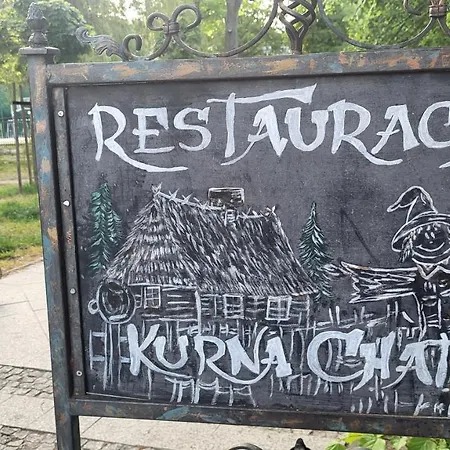 RESTAURAC
KURNA CHAT